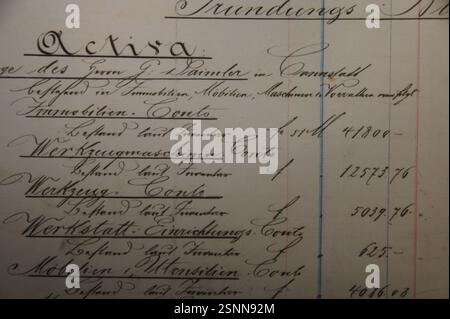 Gründungs
Activa
ge des Herrn G. Daimler in Cannstatt
bestehend in Immobilien, Mobilien, Maschinen, Vorräthen
Immobilien-Conto
Bestand laut Inventar f 55 M 41800.-
Werkzeugmaschinen-Conto
Bestand laut Inventar f 12573 76
Werkzeug-Conto
Bestand laut Inventar f 5039 76.
Werkstatt-Einrichtungs-Conto
Bestand laut Inventar f 625.-
Mobilien Utensilien-Conto
Bestand laut Inventar f 4086.03
alamy
2SNN92M